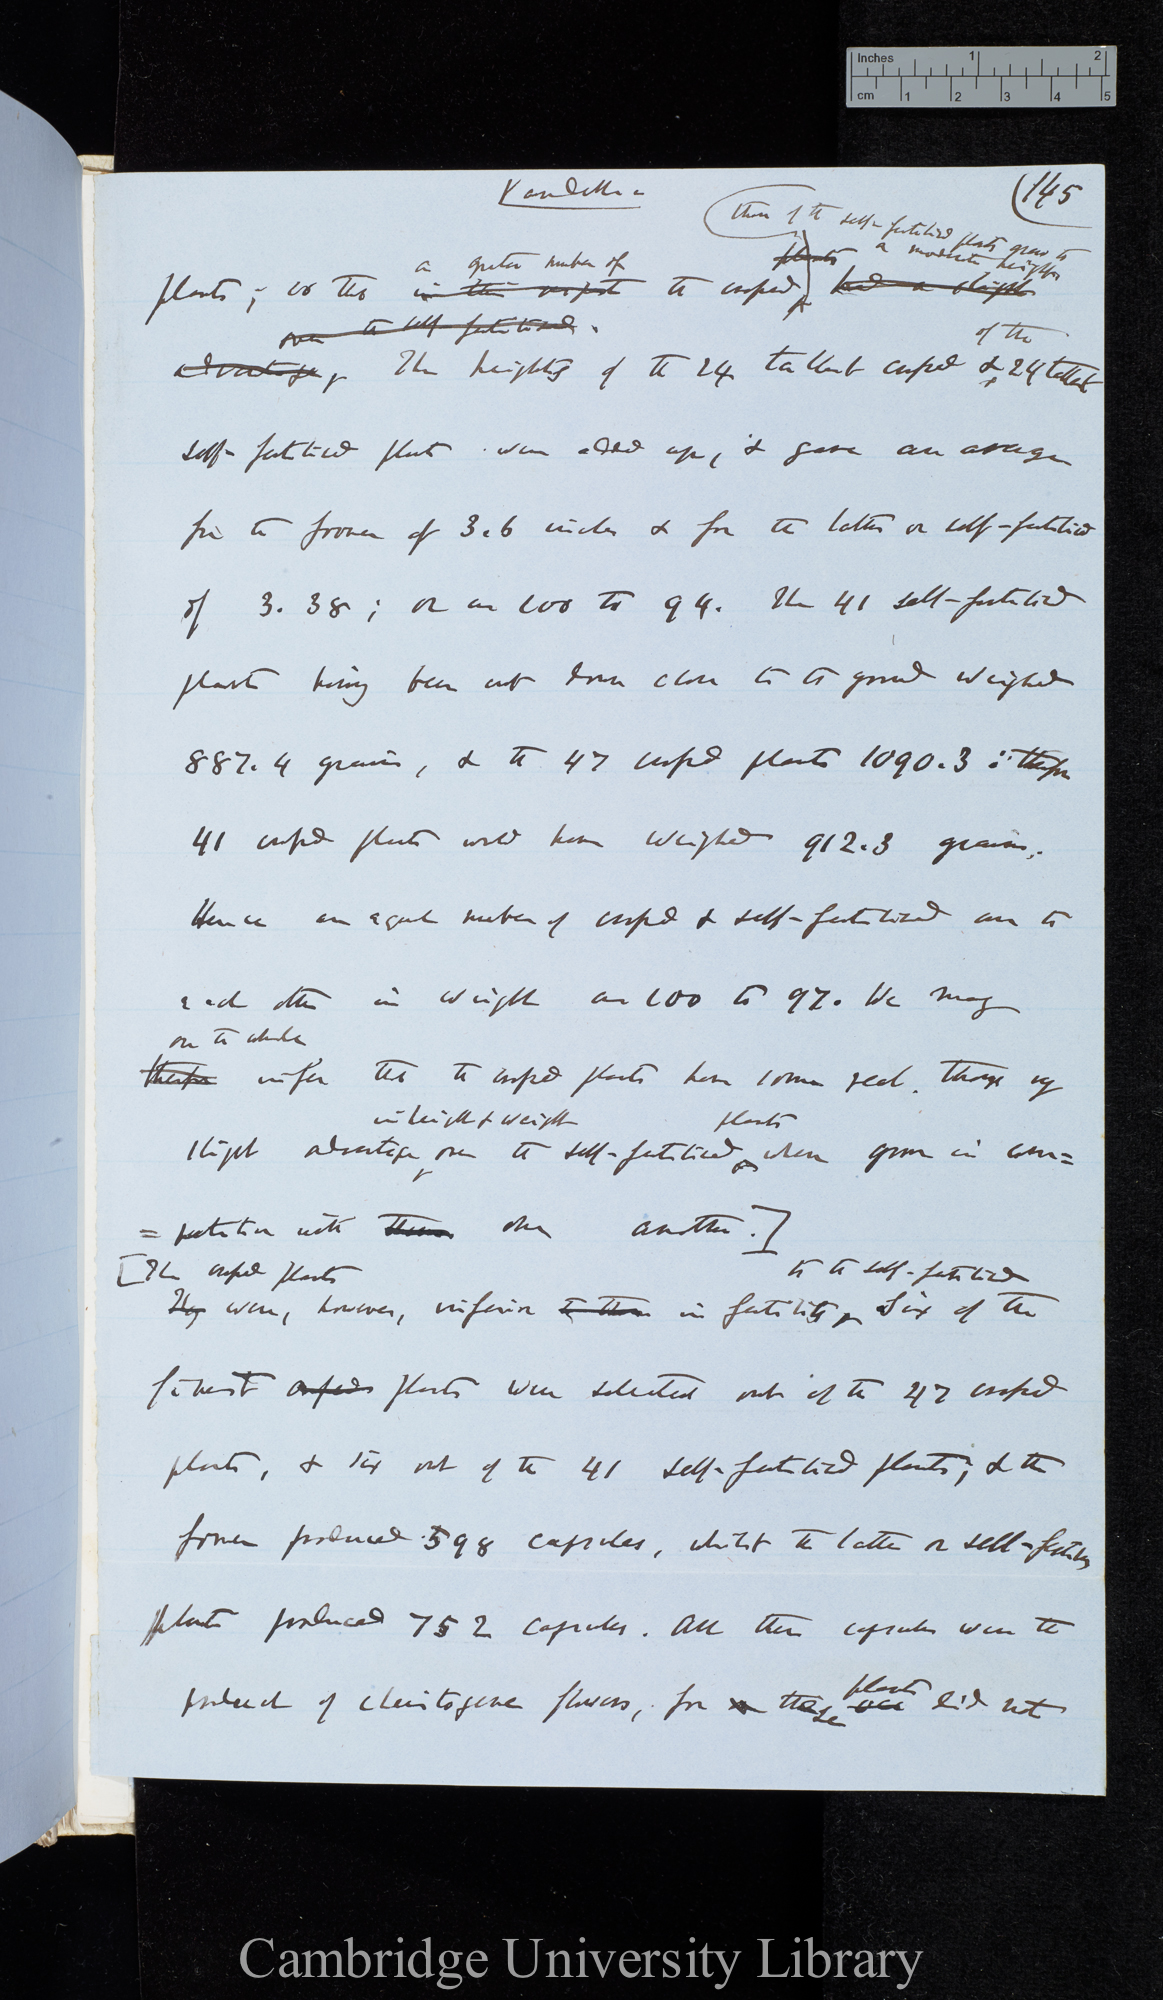 Inches 1 2
cm 1 2 3 4 5
Vandellia
(145
than of the self-fertilised plants grew to
a moderate height
a greater number of plants
plants; so that in this respect the crossed had a slight
over the self-fertilised.
of the
advantage, The heights of the 24 tallest crossed & 24 tallest
self-fertilised plants were added up, & gave an average
for the former of 3.6 inches & for the latter or self-fertilised
of 3.38; or as 100 to 94. The 41 self-fertilised
plants having been cut down close to the ground weighed
887.4 grains, & the 47 crossed plants 1090.3 ∴ therefore
41 crossed plants would have weighed 912.3 grains.
Hence an equal number of crossed & self-fertilised are to
each other in weight as 100 to 97. We may
on the whole
therefore infer that the crossed plants have some real, though very
in height & weight plants
slight advantage over the self-fertilised, when grown in com=
=petition with them one another.]
[The crossed plants to the self-fertilised
They were, however, inferior to them in fertility, Six of the
finest crossed plants were selected out of the 47 crossed
plants, & six out of the 41 self-fertilised plants; & the
former produced 598 capsules, whilst the latter or self-fertilised
plants produced 752 capsules. All these capsules were the
plants
product of cleistogene flowers, for these did not
Cambridge University Library